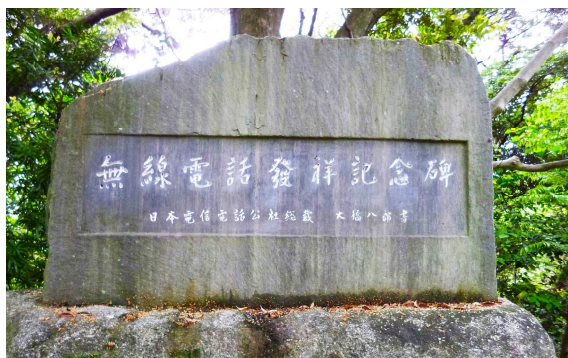 無線電話發祥記念碑
日本電信電話公社総裁 大橋八郎書